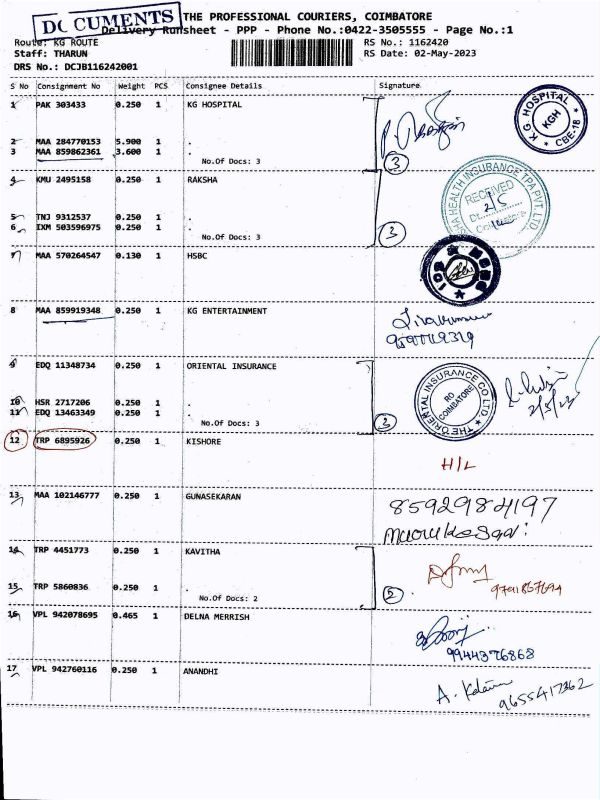 DOCUMENTS
THE PROFESSIONAL COURIERS, COIMBATORE
Delivery Runsheet - PPP - Phone No.:0422-3505555 - Page No.:1
Route: KG ROUTE
RS No.: 1162420
Staff: THARUN
RS Date: 02-May-2023
DRS No.: DCJB116242001
S No Consignment No Weight PCS Consignee Details Signature
1 PAK 303433 0.250 1 KG HOSPITAL
K G HOSPITAL KGH CBE-18
2 MAA 284770153 5.900 1 .
3 MAA 859862361 3.600 1 .
No.Of Docs: 3
3
4 KMU 2495158 0.250 1 RAKSHA
HEALTH INSURANCE TPA PVT. LTD.
RECEIVED
2/5
5 TNJ 9312537 0.250 1 .
6 IXM 503596975 0.250 1 .
No.Of Docs: 3
3
7 MAA 570264547 0.130 1 HSBC
8 MAA 859919348 0.250 1 KG ENTERTAINMENT
9 EDQ 11348734 0.250 1 ORIENTAL INSURANCE
THE ORIENTAL INSURANCE CO LTD.
RD
COIMBATORE
2/5/23
10 HSR 2717206 0.250 1 .
11 EDQ 13463349 0.250 1 .
No.Of Docs: 3
3
12 TRP 6895926 0.250 1 KISHORE
H/L
13 MAA 102146777 0.250 1 GUNASEKARAN
8592984197
14 TRP 4451773 0.250 1 KAVITHA
15 TRP 5860836 0.250 1 .
No.Of Docs: 2
2
16 VPL 942078695 0.465 1 DELNA MERRISH
9944376868
17 VPL 942760116 0.250 1 ANANDHI
9655417362